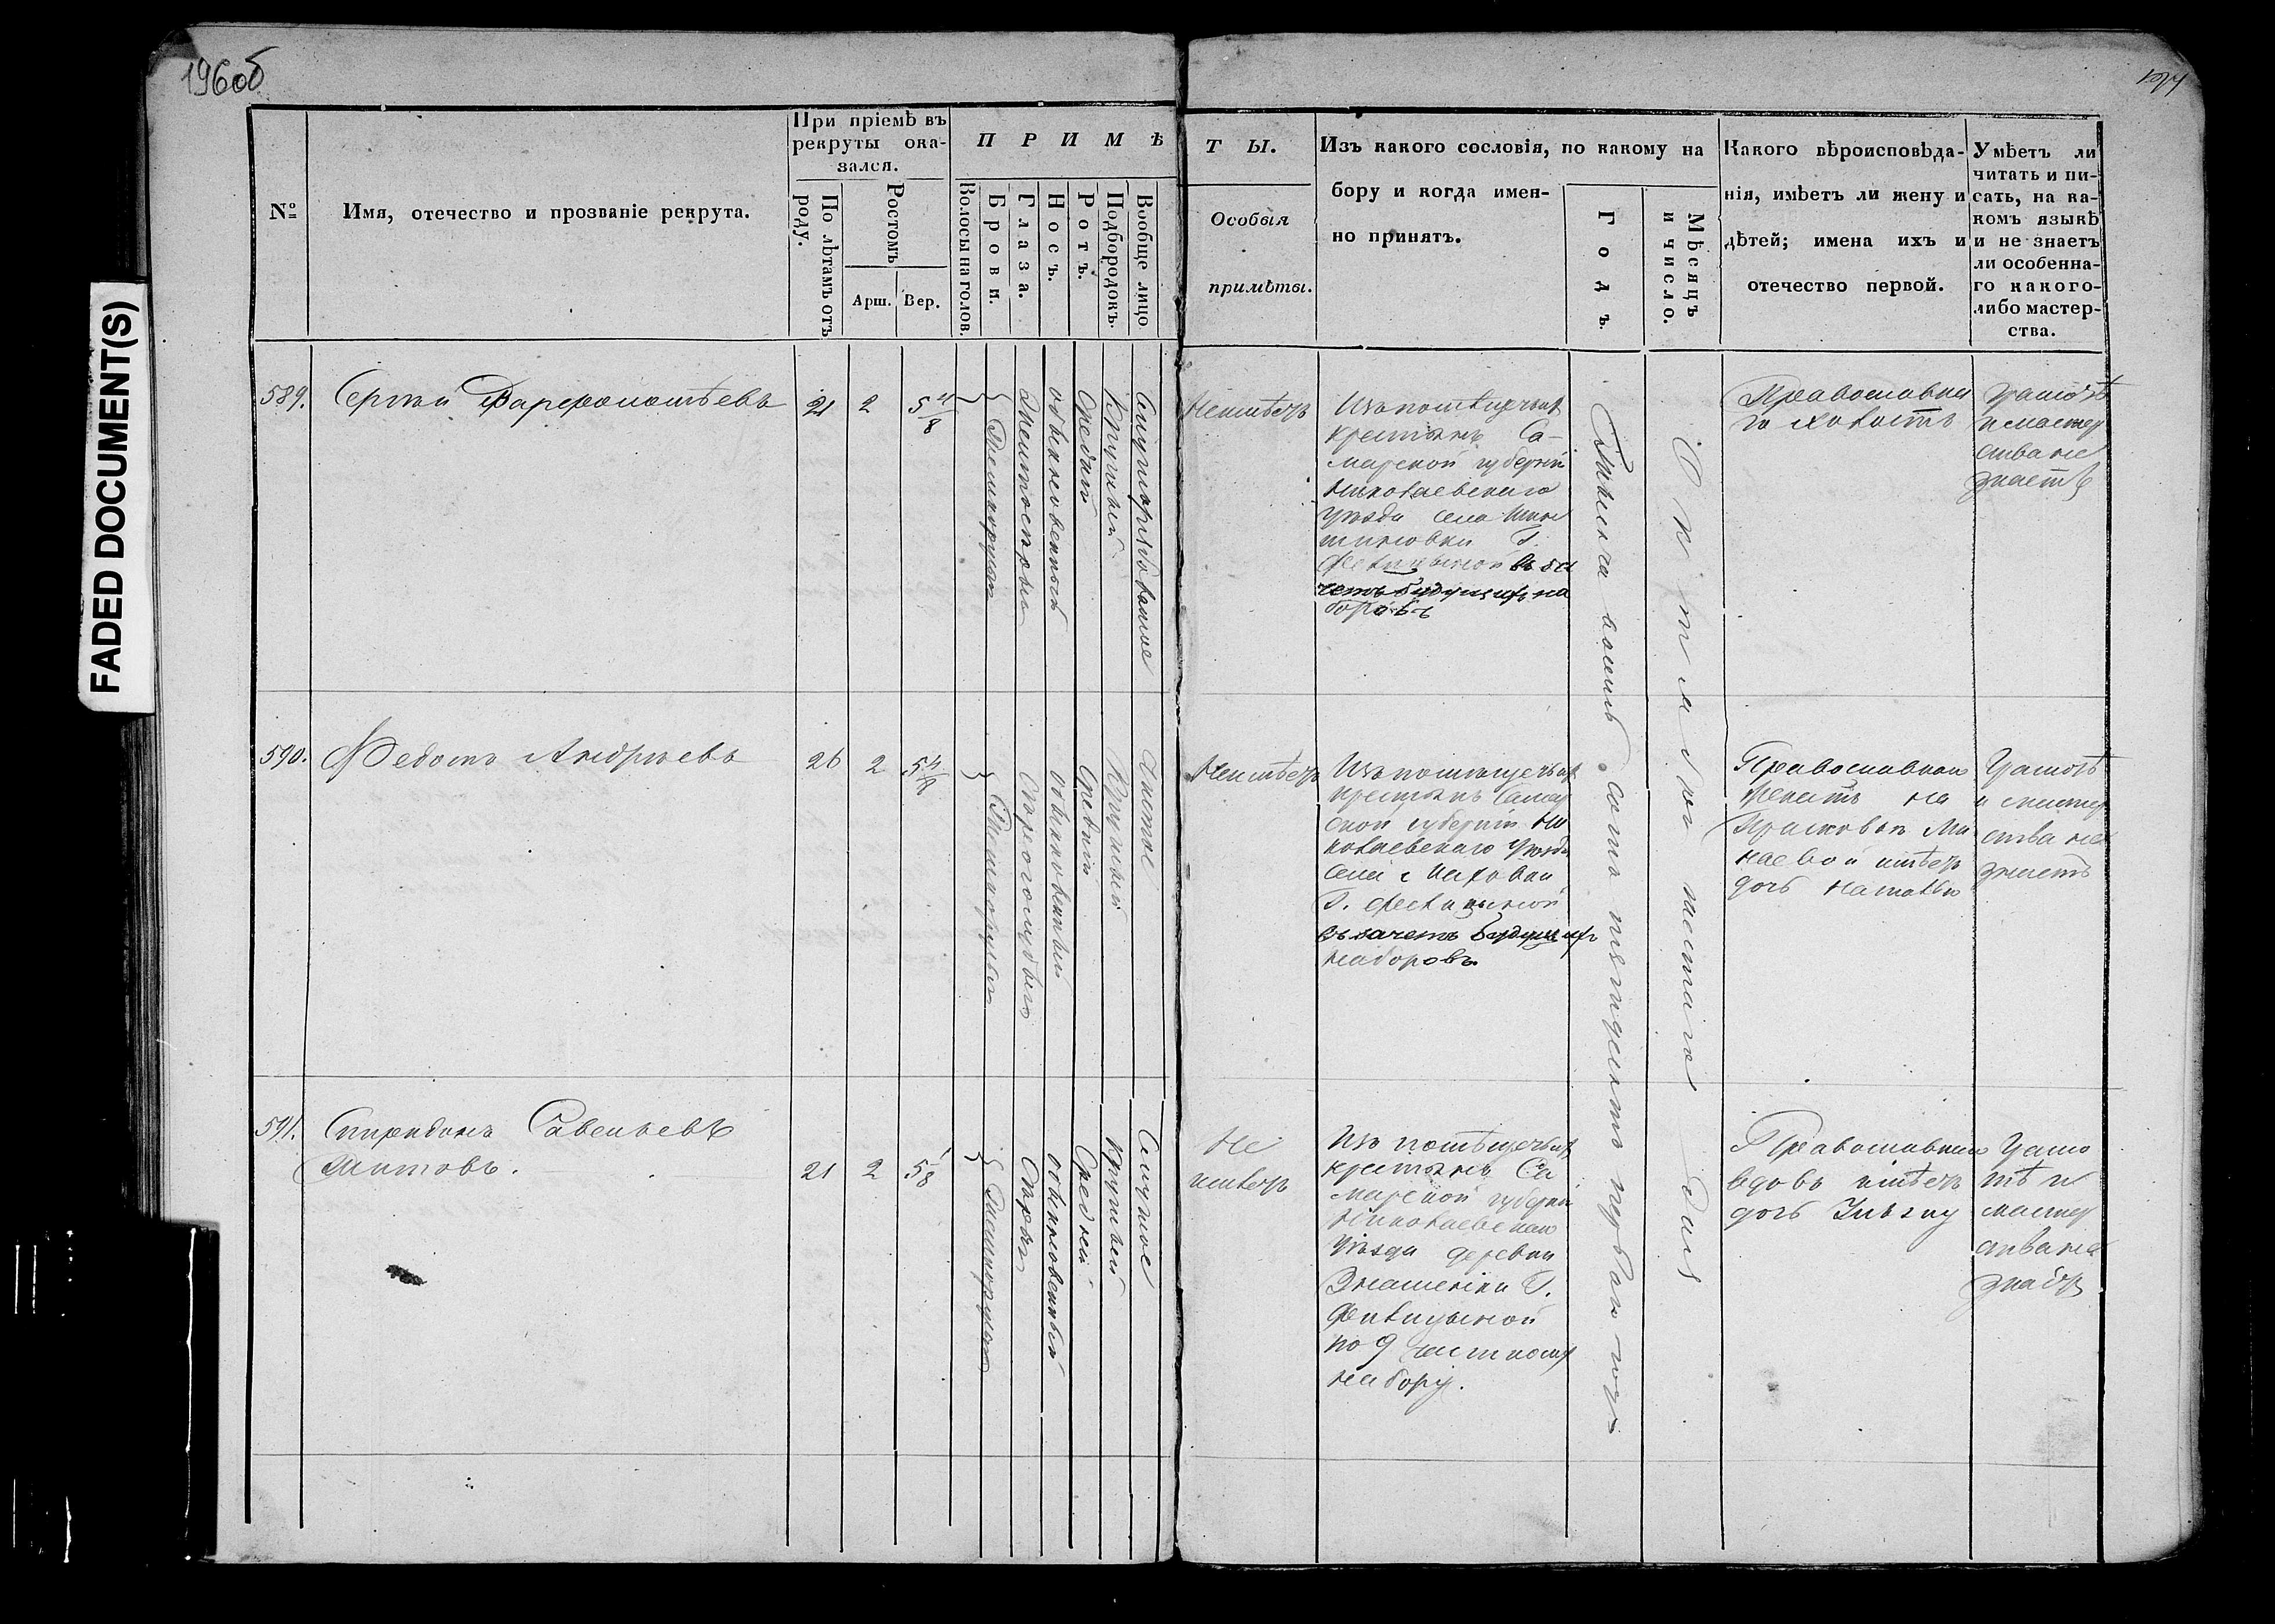 196об
197
FADED DOCUMENT(S)
№
Имя, отечество и прозваніе рекрута.
При пріемѣ въ
рекруты ока-
зался.
По лѣтамъ отъ
роду.
Ростомъ
Арш.
Вер.
ПРИМѢ
Волосы на голов.
Брови.
Глаза.
Носъ.
Ротъ.
Подбородокъ.
Вообще лицо
ТЫ.
Особыя
примѣты.
Изъ какого сословія, по какому на
бору и когда имен-
но принятъ.
Годъ.
Мѣсяцъ
и число.
Какого вѣроисповѣда-
нія, имѣетъ ли жену и
дѣтей; имена ихъ и
отечество первой.
Умѣетъ ли
читать и пи-
сать, на ка-
комъ языкѣ
и не знаетъ
ли особенна-
го какого-
либо мастер-
ства.
589.
Сергѣй
21
2
5 4/8
Темнорусыя
обыкновенный
средній
Круглый
Неимѣетъ
Изъ помѣщичьихъ
крестьянъ Са-
марской губерніи
Николаевскаго
уѣзда села
Г.
въ за
четъ будущихъ на
боровъ
Тысяча восемь сотъ пятьдесятъ перваго года
Октября шестаго дня
Православна
го холостъ
Грамотѣ
и мастер
ства не
знаетъ
590.
Федотъ Андреевъ
26
2
5 4/8
Темнорусыя
Сѣроголубыя
обыкновенный
Средній
Круглый
Чистое
Неимѣетъ
Изъ помѣщичьихъ
крестьянъ Самар
ской губерніи Ни
колаевскаго Уѣзда
села
Г.
въ зачетъ будущихъ
наборовъ.
Православнаго
женатъ на
Прасковьѣ Ми
наевой имѣетъ
дочь Наталью
Грамотѣ
и мастер
ства не
знаетъ
591.
Спиридонъ Савельевъ
Титовъ.
21
2
5 1/8
Темнорусыя
Сѣрыя
обыкновенный
Средній
Круглый
Смуглое
Не
имѣетъ
Изъ помѣщичьихъ
крестьянъ Са
марской губерніи
Николаевскаго
Уѣзда деревни
Знаменки Г.
по 9 частному
набору.
Православнаго
вдовъ имѣетъ
дочь
Грамо
тѣ и
мастер
ства не
знаетъ